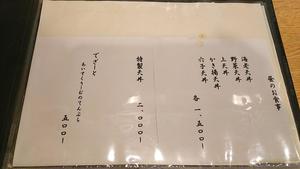 昼のお食事
海老天丼
野菜天丼
上天丼
かき揚天丼
穴子天丼
各 一、五〇〇
特製天丼
二、〇〇〇
でざーと
あいすくりーむのてんぷら
五〇〇